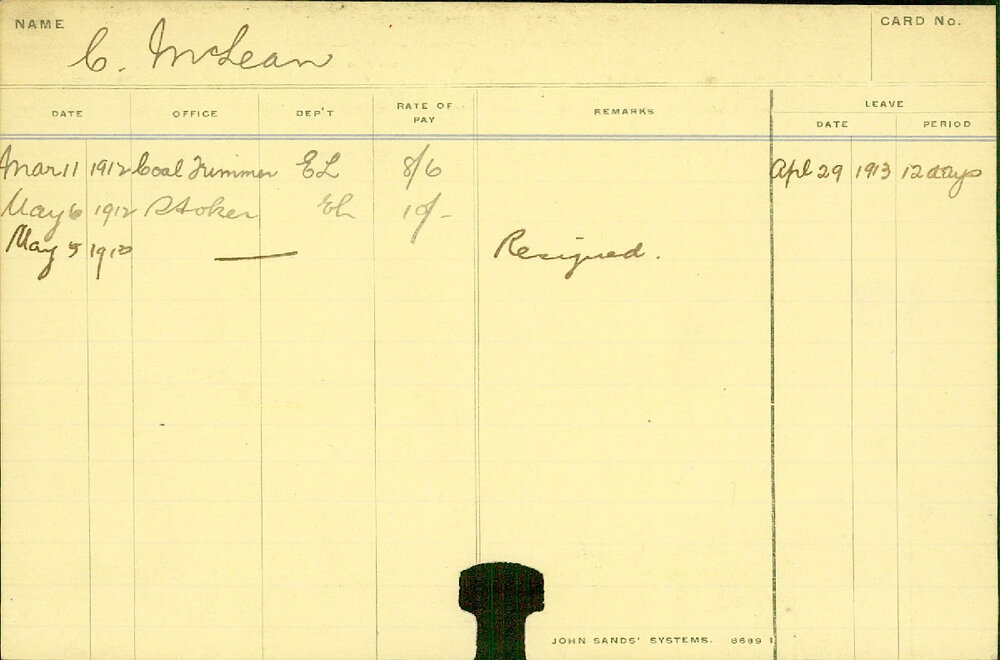 NAME C. McLean CARD No.
DATE OFFICE DEP'T RATE OF PAY REMARKS LEAVE
DATE PERIOD
Mar 11 1912 Coal Trimmer EL 8/6 Apl 29 1913 12 days
May 6 1912 Stoker EL 10/-
May 5 — Resigned.
JOHN SANDS' SYSTEMS. 8689